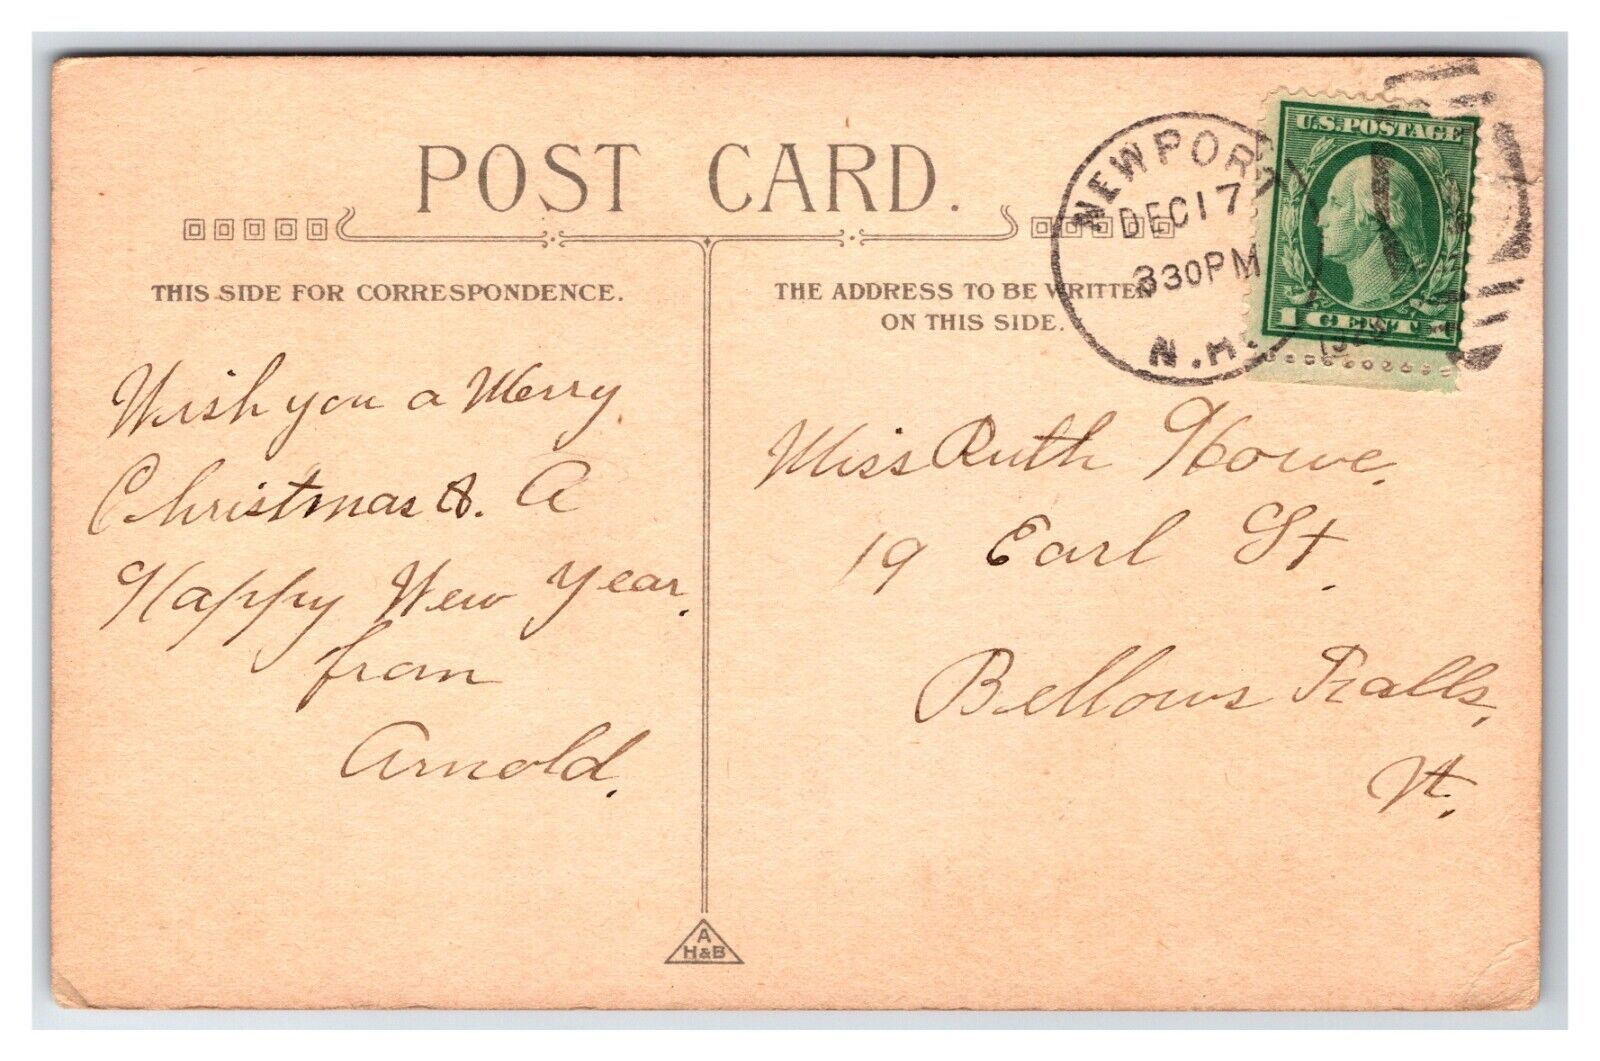 POST CARD.
THIS SIDE FOR CORRESPONDENCE.
THE ADDRESS TO BE WRITTEN
ON THIS SIDE.
NEWPORT
DEC 17
330 PM
N.H.
U.S. POSTAGE
1 CENT 1
Wish you a Merry
Christmas &. A
Happy New Year.
from
Arnold.
Miss Ruth Howe.
19 Earl St.
Bellows Falls,
Vt.
A
H&B